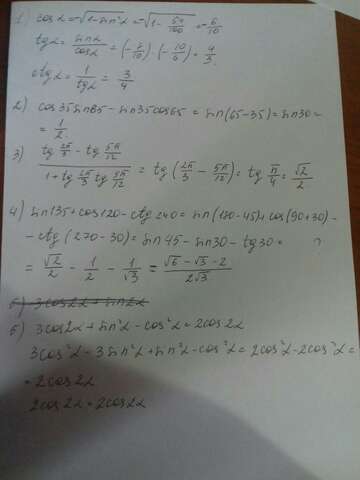 1) cosα = -√1-sin²α = -√1- 64/100 = -6/10
tgα = sinα/cosα = (-8/10)·(-10/6) = 4/3
ctgα = 1/tgα = 3/4
2) cos35 sin65 - sin35 cos65 = sin(65-35) = sin30 =
= 1/2
3) (tg 2π/3 - tg 5π/12)/(1+tg 2π/3 tg 5π/12) = tg(2π/3 - 5π/12) = tg π/4 = √2/2
4) sin135 + cos120 - ctg240 = sin(180-45) + cos(90+30) -
- ctg(270-30) = sin45 - sin30 - tg30 = ?
= √2/2 - 1/2 - 1/√3 = (√6 - √3 - 2)/(2√3)
5) 3cos2α + sin2α
5) 3cos2α + sin²α - cos²α = 2cos2α
3cos²α - 3sin²α + sin²α - cos²α = 2cos²α - 2cos²α =
= 2cos2α
2cos2α = 2cos2α